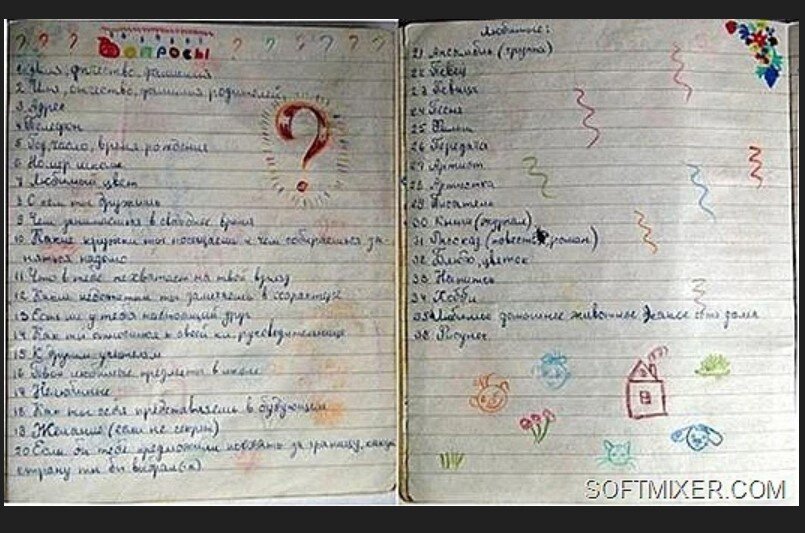 Вопросы
1. Имя, отчество, фамилия
2. Имя, отчество, фамилия родителей
3. Адрес
4. Телефон
5. Год, число, время рождения
6. Номер школы
7. Любимый цвет
8. С кем ты дружишь
9. Чем занимаешься в свободное время
10. Какие кружки ты посещаешь и чем собираешься за-
няться надолго
11. Что в тебе не хватает на твой взгляд
12. Какие недостатки ты замечаешь в характере
13. Есть ли у тебя настоящий друг
14. Как ты относишься к своей кл. руководительнице
15. К другим учителям
16. Твои любимые предметы в школе
17. Нелюбимые
18. Как ты себя представляешь в будующем
19. Желание (если не секрет)
20. Если бы тебе предложили поехать за границу, какую
страну ты бы выбрал(а)
?
Любимые:
21. Ансамбль (группа)
22. Певец
23. Певица
24. Песня
25. Фильм
26. Передача
27. Артист
28. Артистка
29. Писатель
30. Книга (журнал)
31. Рассказ (повесть, роман)
32. Блюдо, цветок
33. Напиток
34. Хобби
35. Любимое домашнее животное
36. Рисунок
SOFTMIXER.COM